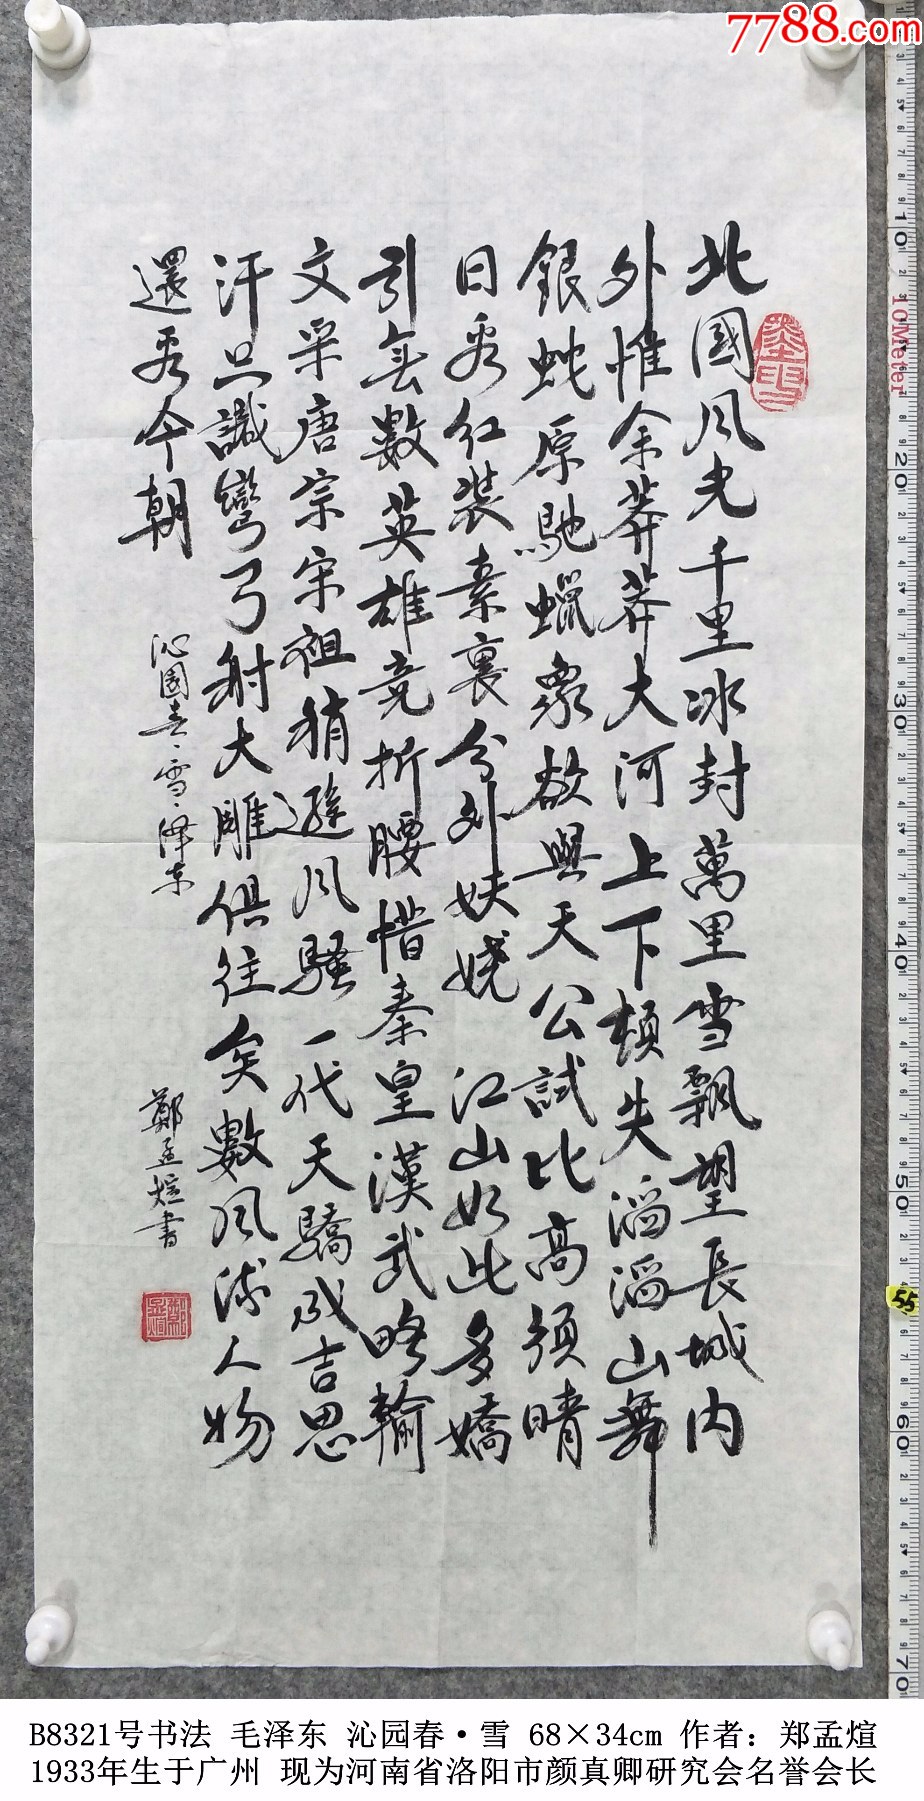 7788.com
北國風光千里冰封萬里雪飄望長城内
外惟余莽莽大河上下頓失滔滔山舞
銀蛇原馳蠟象欲與天公試比高須晴
日看紅裝素裹分外妖嬈 江山如此多嬌
引無數英雄竞折腰惜秦皇漢武略輸
文采唐宗宋祖稍遜風騷一代天驕成吉思
汗只識彎弓射大雕俱往矣數風流人物
還看今朝
沁園春·雪·澤東
鄭孟煊書
10Meter
10
20
30
40
50
55
60
70
B8321号书法 毛泽东 沁园春·雪 68×34cm 作者：郑孟煊
1933年生于广州 现为河南省洛阳市颜真卿研究会名誉会长